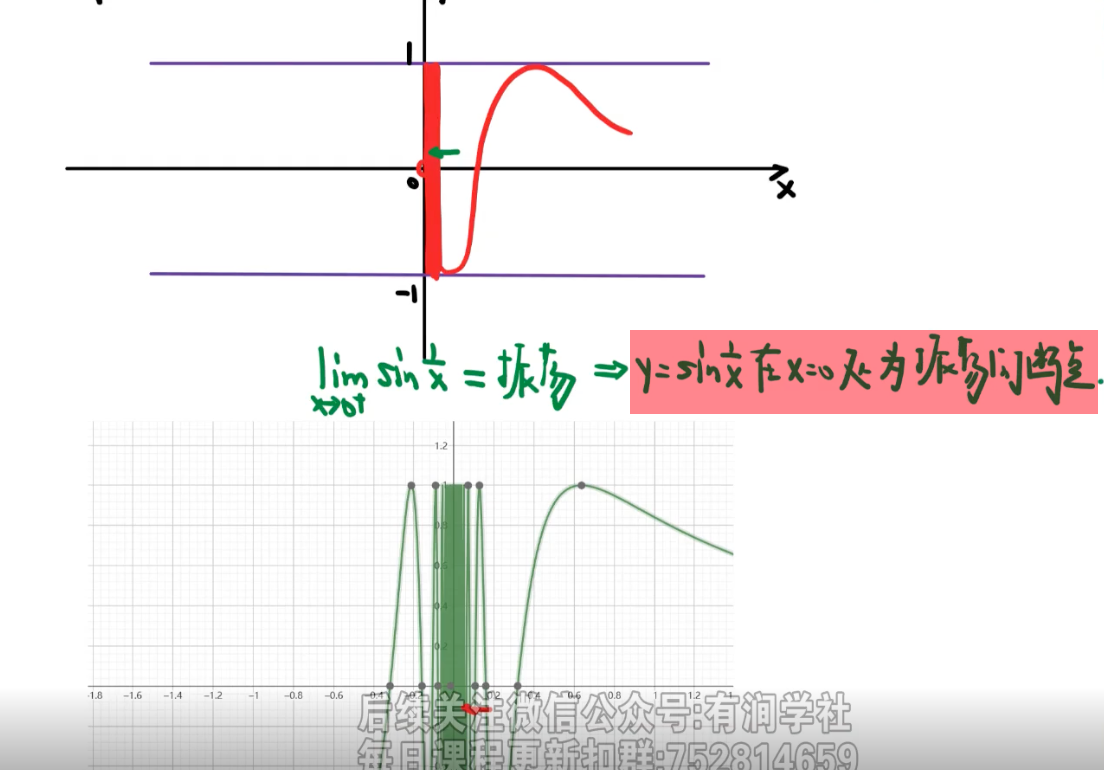 1
0
x
-1
lim sin 1/x = 振荡 ⇒ y = sin 1/x 在 x=0 处为振荡间断点.
x→0⁺
1.2
1
0.8
0.6
0.4
0.2
-1.8 -1.6 -1.4 -1.2 -1 -0.8 -0.6 -0.4 -0.2 0.2 0.4 0.6 0.8 1 1.2 1.4
后续关注微信公众号:有润学社
每日课程更新扣群:752814659